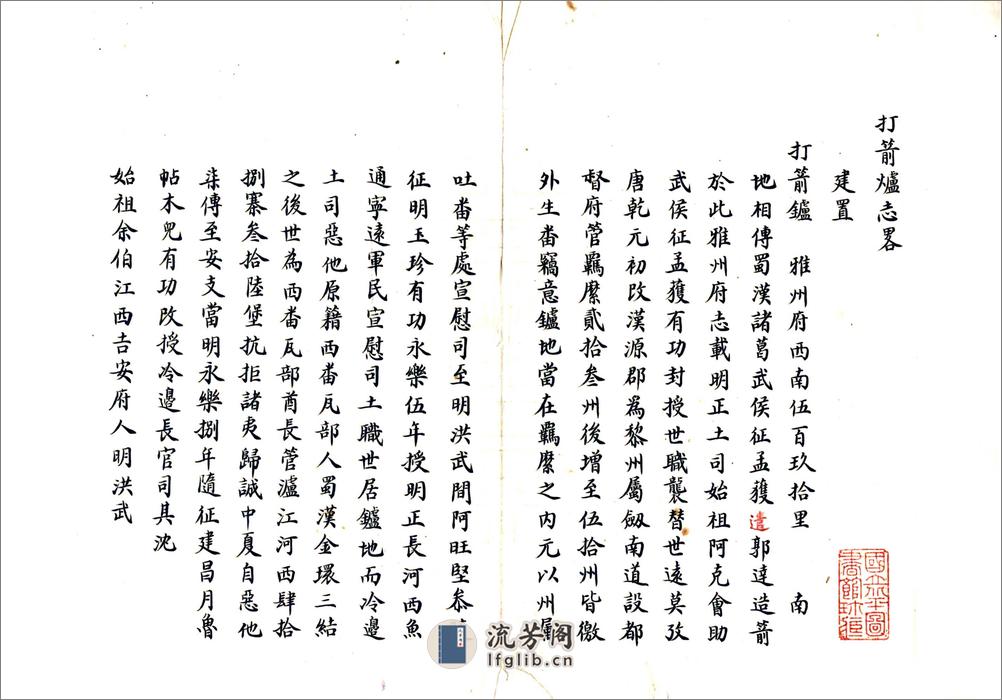 打箭爐志畧
建置
打箭鑪 雅州府西南伍百玖拾里 南
地相傳蜀漢諸葛武侯征孟獲遣郭達造箭
於此雅州府志載明正土司始祖阿克會助
武侯征孟獲有功封授世職襲替世遠莫攷
唐乾元初改漢源郡為黎州屬劔南道設都
督府管羈縻貳拾叁州後增至伍拾州皆徼
外生番竊意鑪地當在羈縻之內元以州屬
吐番等處宣慰司至明洪武間阿旺堅叅
征明玉珍有功永樂伍年授明正長河西魚
通寧遠軍民宣慰司土職世居鑪地而冷邊
土司惡他原籍西番瓦部人蜀漢金環三結
之後世為西番瓦部酋長管瀘江河西肆拾
捌寨叁拾陸堡抗拒諸夷歸誠中夏自惡他
柒傳至安支當明永樂捌年隨征建昌月魯
帖木兒有功改授冷邊長官司其沈
始祖余伯江西吉安府人明洪武
國立北平圖
書館珍藏
流芳阁
lfglib.cn